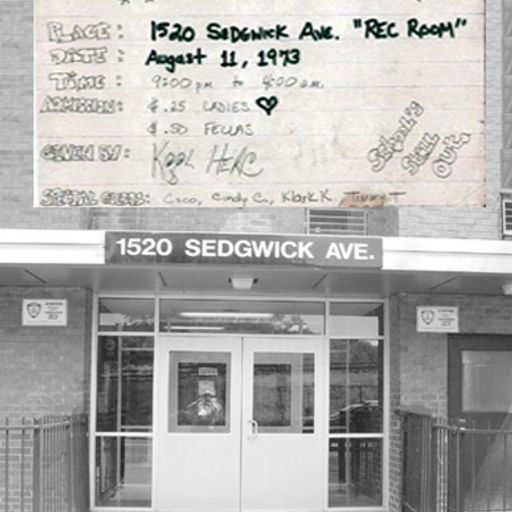 PLACE: 1520 SEDGWICK AVE. "REC ROOM"
DATE: August 11, 1973
TIME: 9:00 pm to 4:00 am
ADMISSION: $.25 LADIES
$.50 FELLAS
GIVEN BY: KOOL HERC
School's
Still
Out.
SPECIAL GUESTS: Coco, Cindy C., Klark K., Timmy T
1520 SEDGWICK AVE.